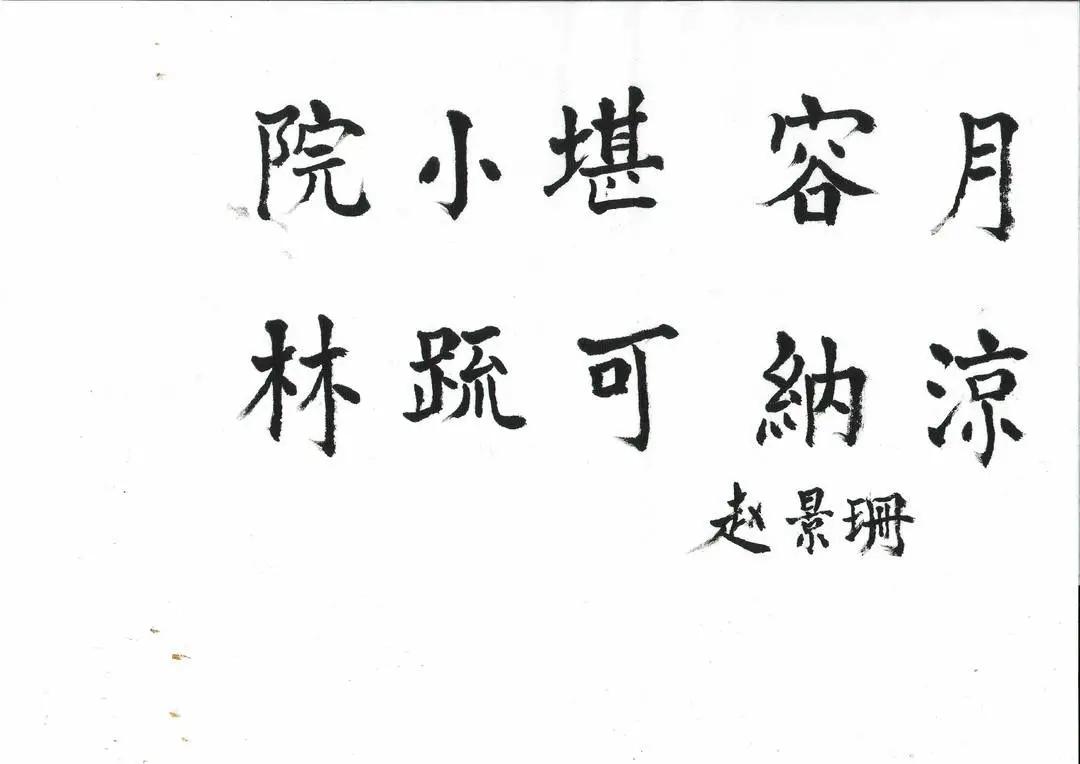 院小堪容月
林疏可納涼
赵景珊